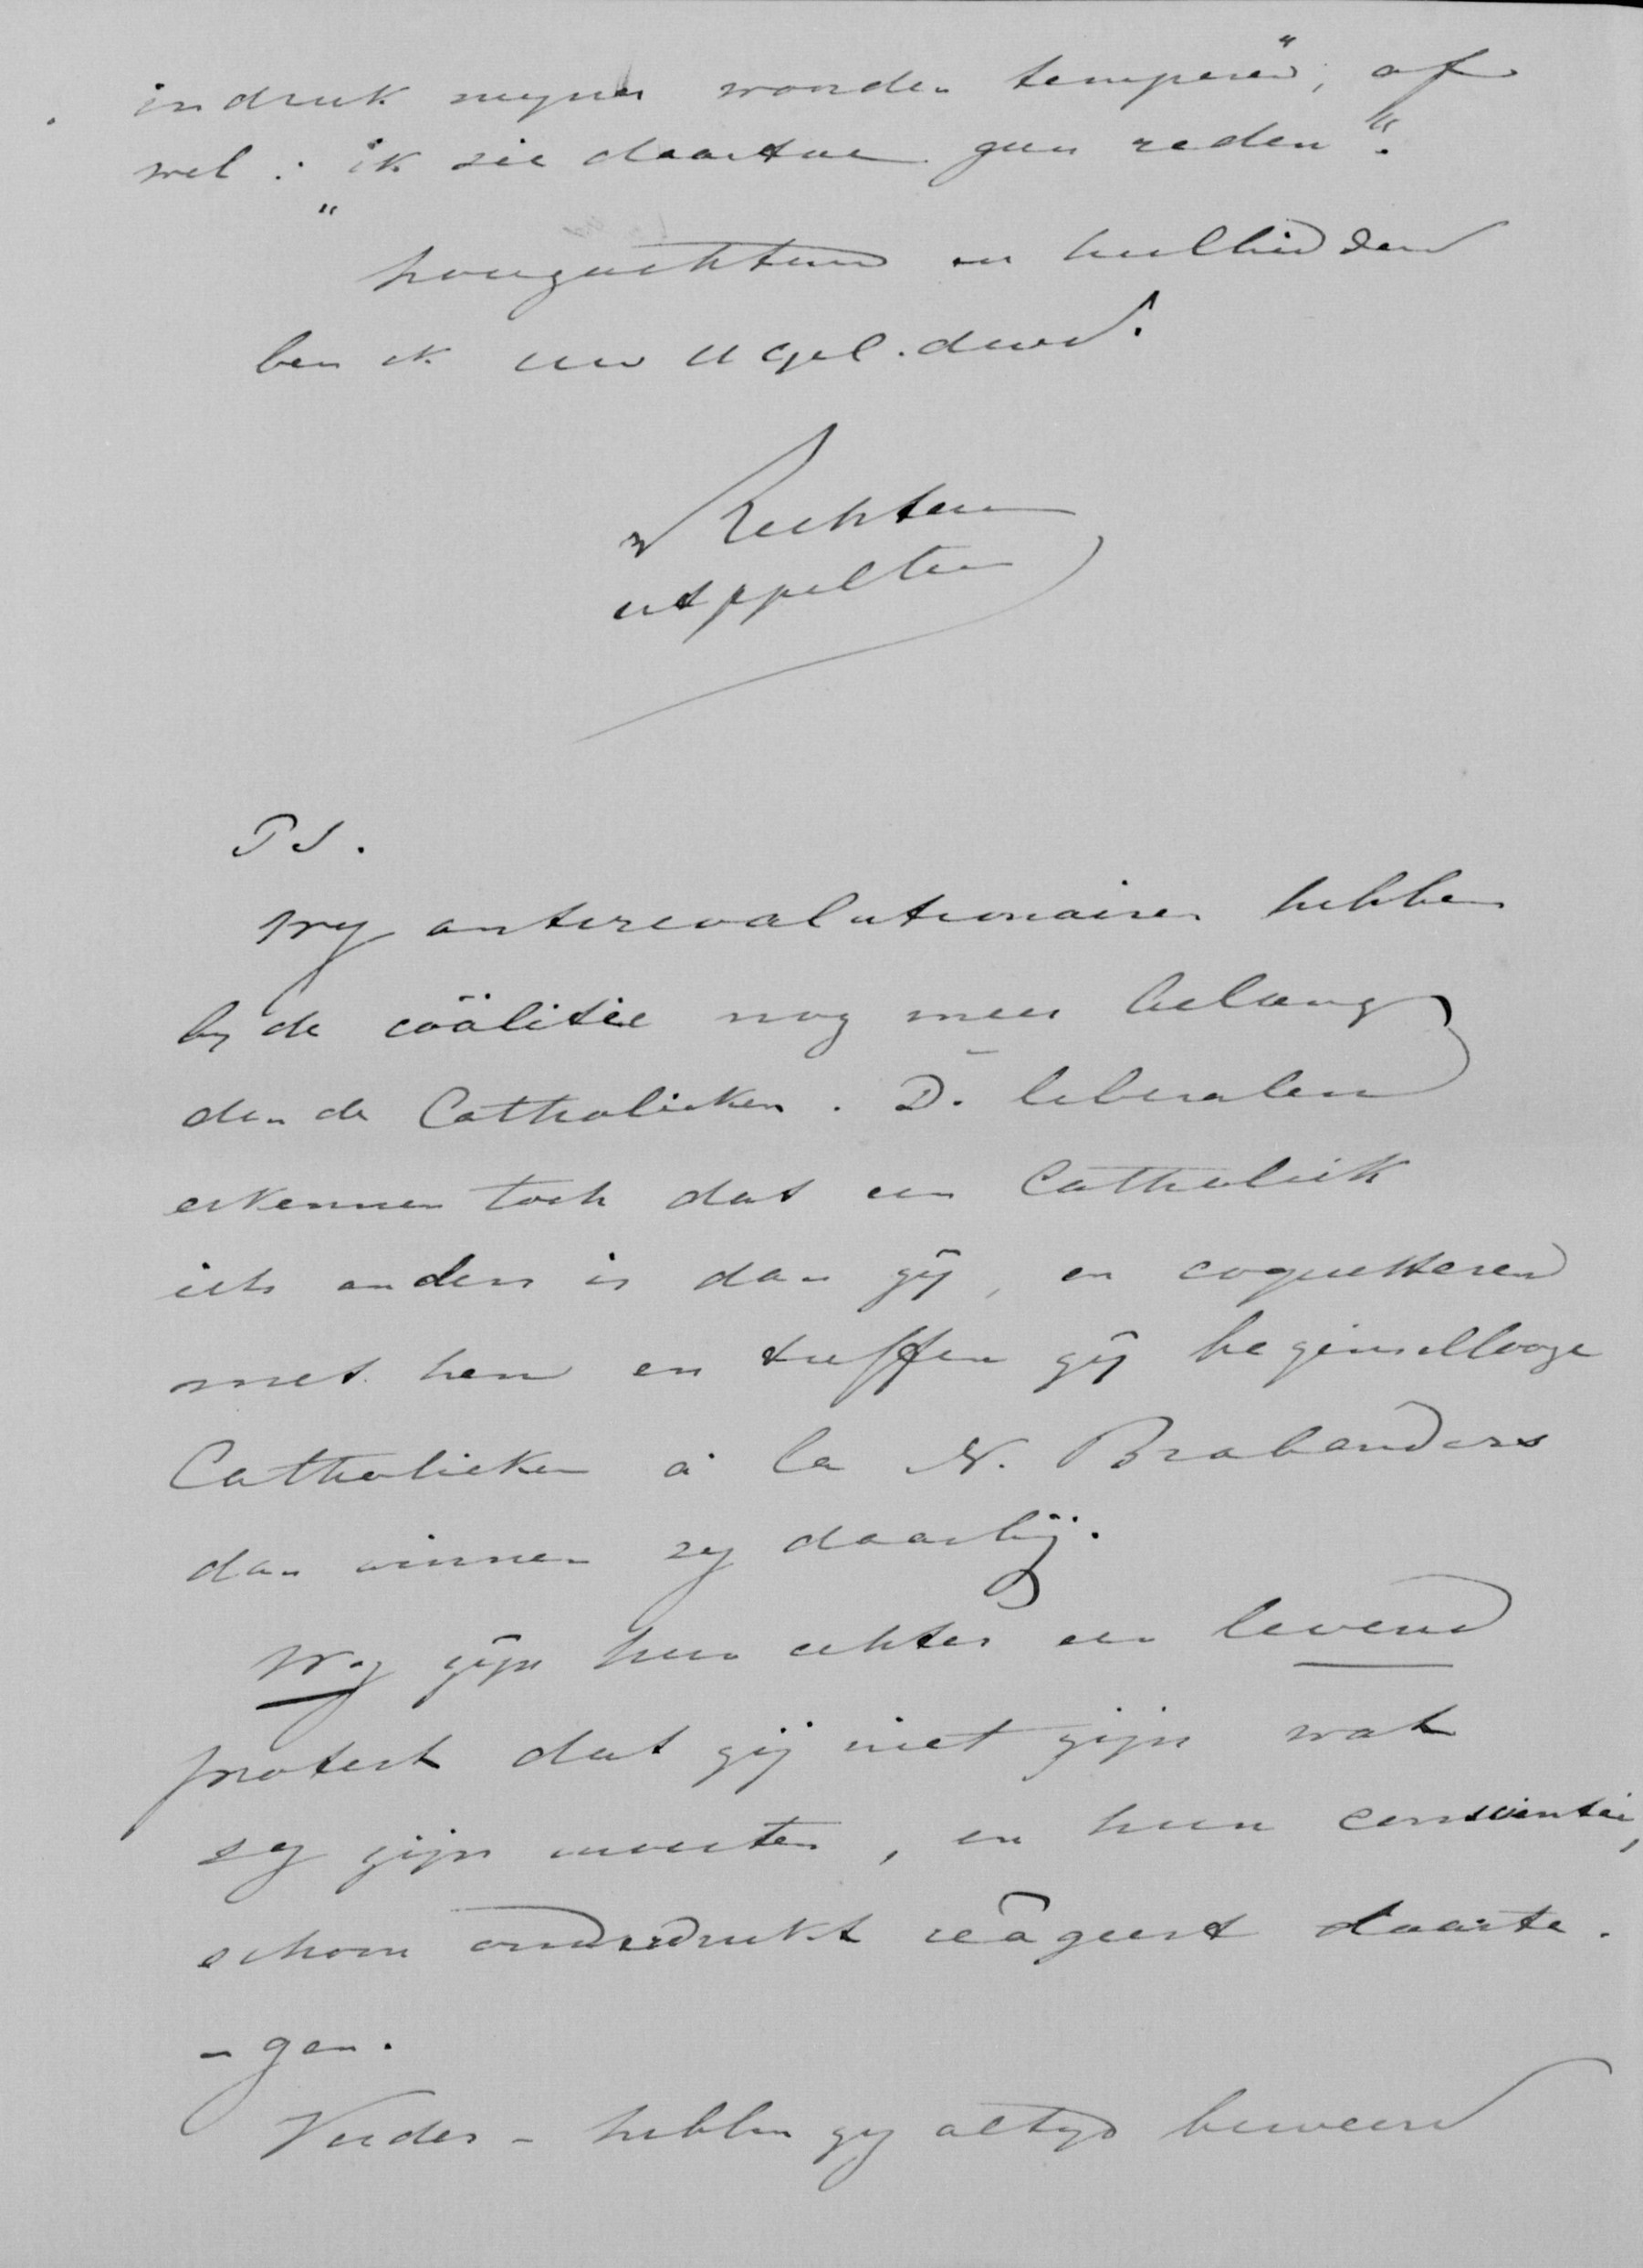 indruk mijner woorden temperen", of
wel: "ik zie daartoe geen reden".
hoogachtend en heilbiddend
ben ik uw UEgel. dien.
v Rechteren
v Appeltern
PS.
Wy antirevolutionairen hebben
by de coälitie nog meer belang
dan de Catholieken. De liberalen
erkennen toch dat een Catholiek
iets anders is dan zij, en coquetteren
met hen en treffen zij beginsellooze
Catholieken à la N. Brabanders
dan winnen zy daarbij.
Wy zijn hun echter een levend
protest dat zij niet zijn wat
zy zijn moesten, en hun conscientie,
schoon onderdrukt reageert daarte-
-gen.
Verder - hebben zy altyd beweerd